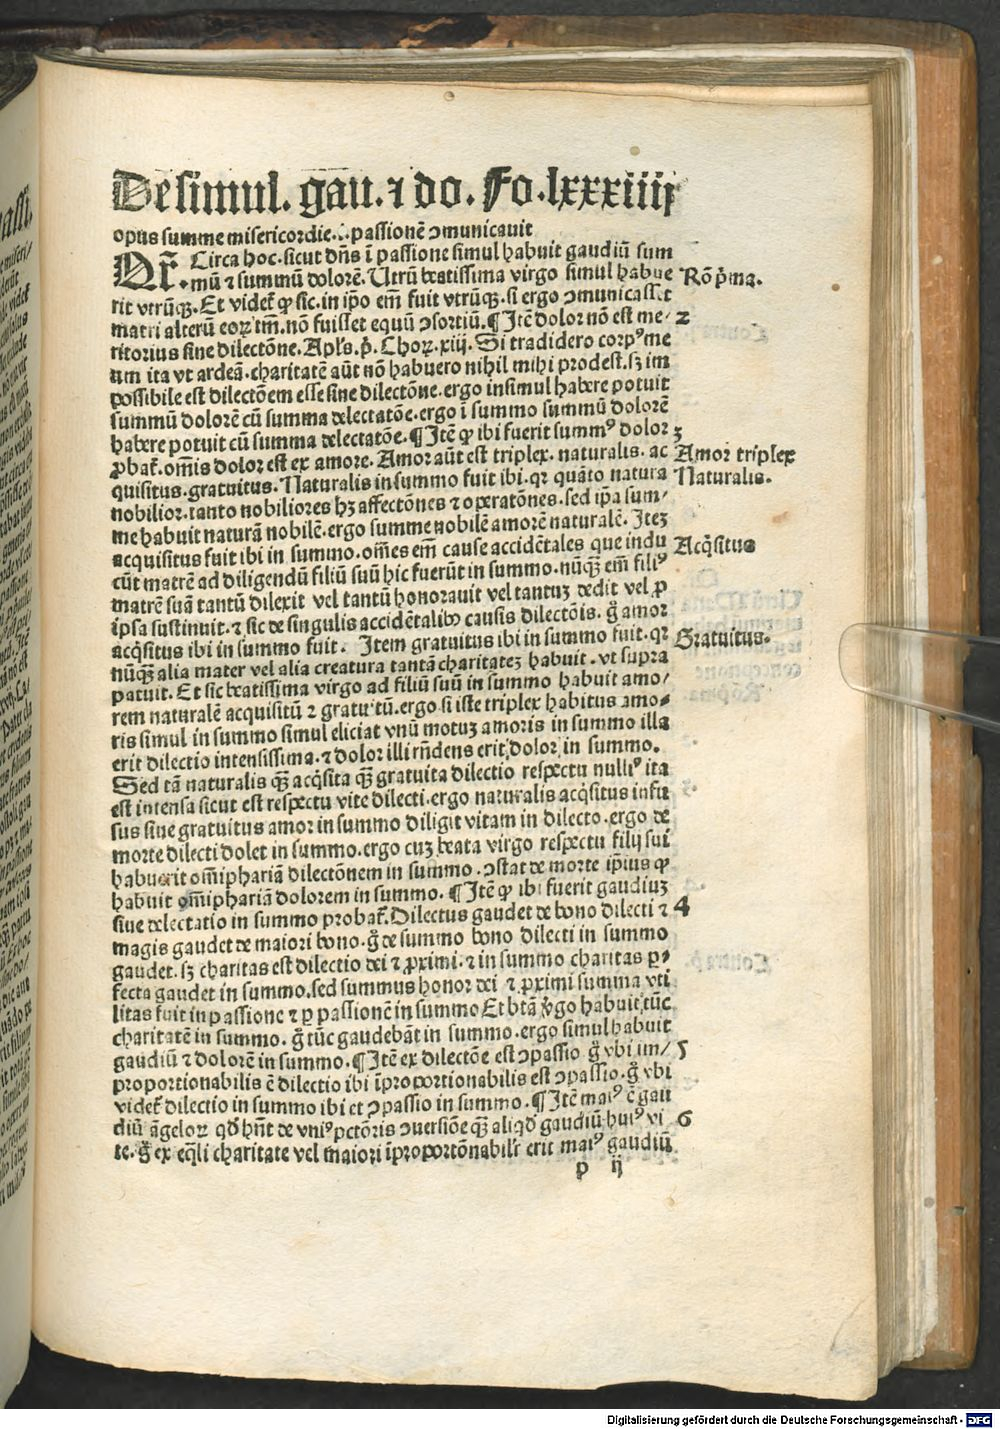 De simul. gau. ⁊ do. Fo. lxxxiiij
opus summe misericordie .i. passionē ↄmunicauit
Circa hoc. sicut dn̄s ī passione simul habuit gaudiū sum
mū ⁊ summū dolorē. Utrū beatissima virgo simul habue Rō p̄ma.
rit vtrūqꝫ. Et videt̄ ꝙ sic. in ip̄o em̄ fuit vtrūqꝫ. si ergo ↄmunicasset
matri alterū eoꝝ tm̄. nō fuisset equū ↄsortiū. ¶ Itē dolor nō est me/ 2
ritorius sine dilectōne. Apl's. p̄. Choꝝ. xiij. Si tradidero corpꝰ me
um ita vt ardeā. charitatē aūt nō habuero nihil mihi prodest. sꝫ im
possibile est dilectōem esse sine dilectōne. ergo insimul habere potuit
summū dolorē cū summa delectatōe. ergo ī summo summū dolorē
habere potuit cū summa delectatōe. ¶ Itē ꝙ ibi fuerit summꝰ dolor 3
ꝓbat̄. om̄is dolor est ex amore. Amor aūt est triplex. naturalis. ac Amor triplex
quisitus. gratuitus. Naturalis in summo fuit ibi. qꝛ quāto natura Naturalis.
nobilior. tanto nobiliores hꝫ affectōnes ⁊ oꝑatōnes. sed ip̄a sum/
me habuit naturā nobilē. ergo summe nobilē amorē naturalē. Iteꝫ
acquisitus fuit ibi in summo. om̄es em̄ cause accidētales que indu Acq̄situs
cūt matrē ad diligendū filiū suū hic fuerūt in summo. nūqꝫ em̄ filiꝰ
matrē suā tantū dilexit vel tantū honorauit vel tantuꝫ dedit vel ꝓ
ipsa sustinuit. ⁊ sic de singulis accidētalibꝰ causis dilectōis. ḡ amor
acq̄situs ibi in summo fuit. Item gratuitus ibi in summo fuit. qꝛ Gratuitus.
nūqꝫ alia mater vel alia creatura tantā charitateꝫ habuit. vt supra
patuit. Et sic beatissima virgo ad filiū suū in summo habuit amo/
rem naturalē acquisitū ⁊ gratuitū. ergo si iste triplex habitus amo/
ris simul in summo simul eliciat vnū motuꝫ amoris in summo illa
erit dilectio intensissima. ⁊ dolor illi rn̄dens erit dolor in summo.
Sed tā naturalis qꝫ acq̄sita qꝫ gratuita dilectio respectu nulliꝰ ita
est intensa sicut est respectu vite dilecti. ergo naturalis acq̄situs infu
sus siue gratuitus amor in summo diligit vitam in dilecto. ergo de
morte dilecti dolet in summo. ergo cuꝫ beata virgo respectu filij sui
habuerit om̄iphariā dilectōnem in summo. ↄstat de morte ip̄ius ꝙ
habuit om̄iphariā dolorem in summo. ¶ Itē ꝙ ibi fuerit gaudiuꝫ
siue delectatio in summo probat̄. Dilectus gaudet de bono dilecti ⁊ 4
magis gaudet de maiori bono. ḡ de summo bono dilecti in summo
gaudet. sꝫ charitas est dilectio dei ⁊ ꝓximi. ⁊ in summo charitas ꝑ/
fecta gaudet in summo. sed summus honor dei ⁊ ꝓximi summa vti
litas fuit in passione ⁊ ꝑ passionē in summo Et btā v̄go habuit tūc
charitatē in summo. ḡ tūc gaudebāt in summo. ergo simul habuit
gaudiū ⁊ dolorē in summo. ¶ Itē ex dilectōe est ↄpassio ḡ vbi im/ 5
proportionabilis ē dilectio ibi īproportionabilis est ↄpassio. ḡ vbi
videt̄ dilectio in summo ibi et ↄpassio in summo. ¶ Itē maiꝰ ē gau
diū āgeloꝝ qd̄ hn̄t de vniꝰ pctōris ↄuersiōe qꝫ aliqd̄ gaudiū huiꝰ vi 6
te. ḡ ex eq̄li charitate vel maiori īproportōnabil'r erit maiꝰ gaudiū
p ij
Digitalisierung gefördert durch die Deutsche Forschungsgemeinschaft - DFG